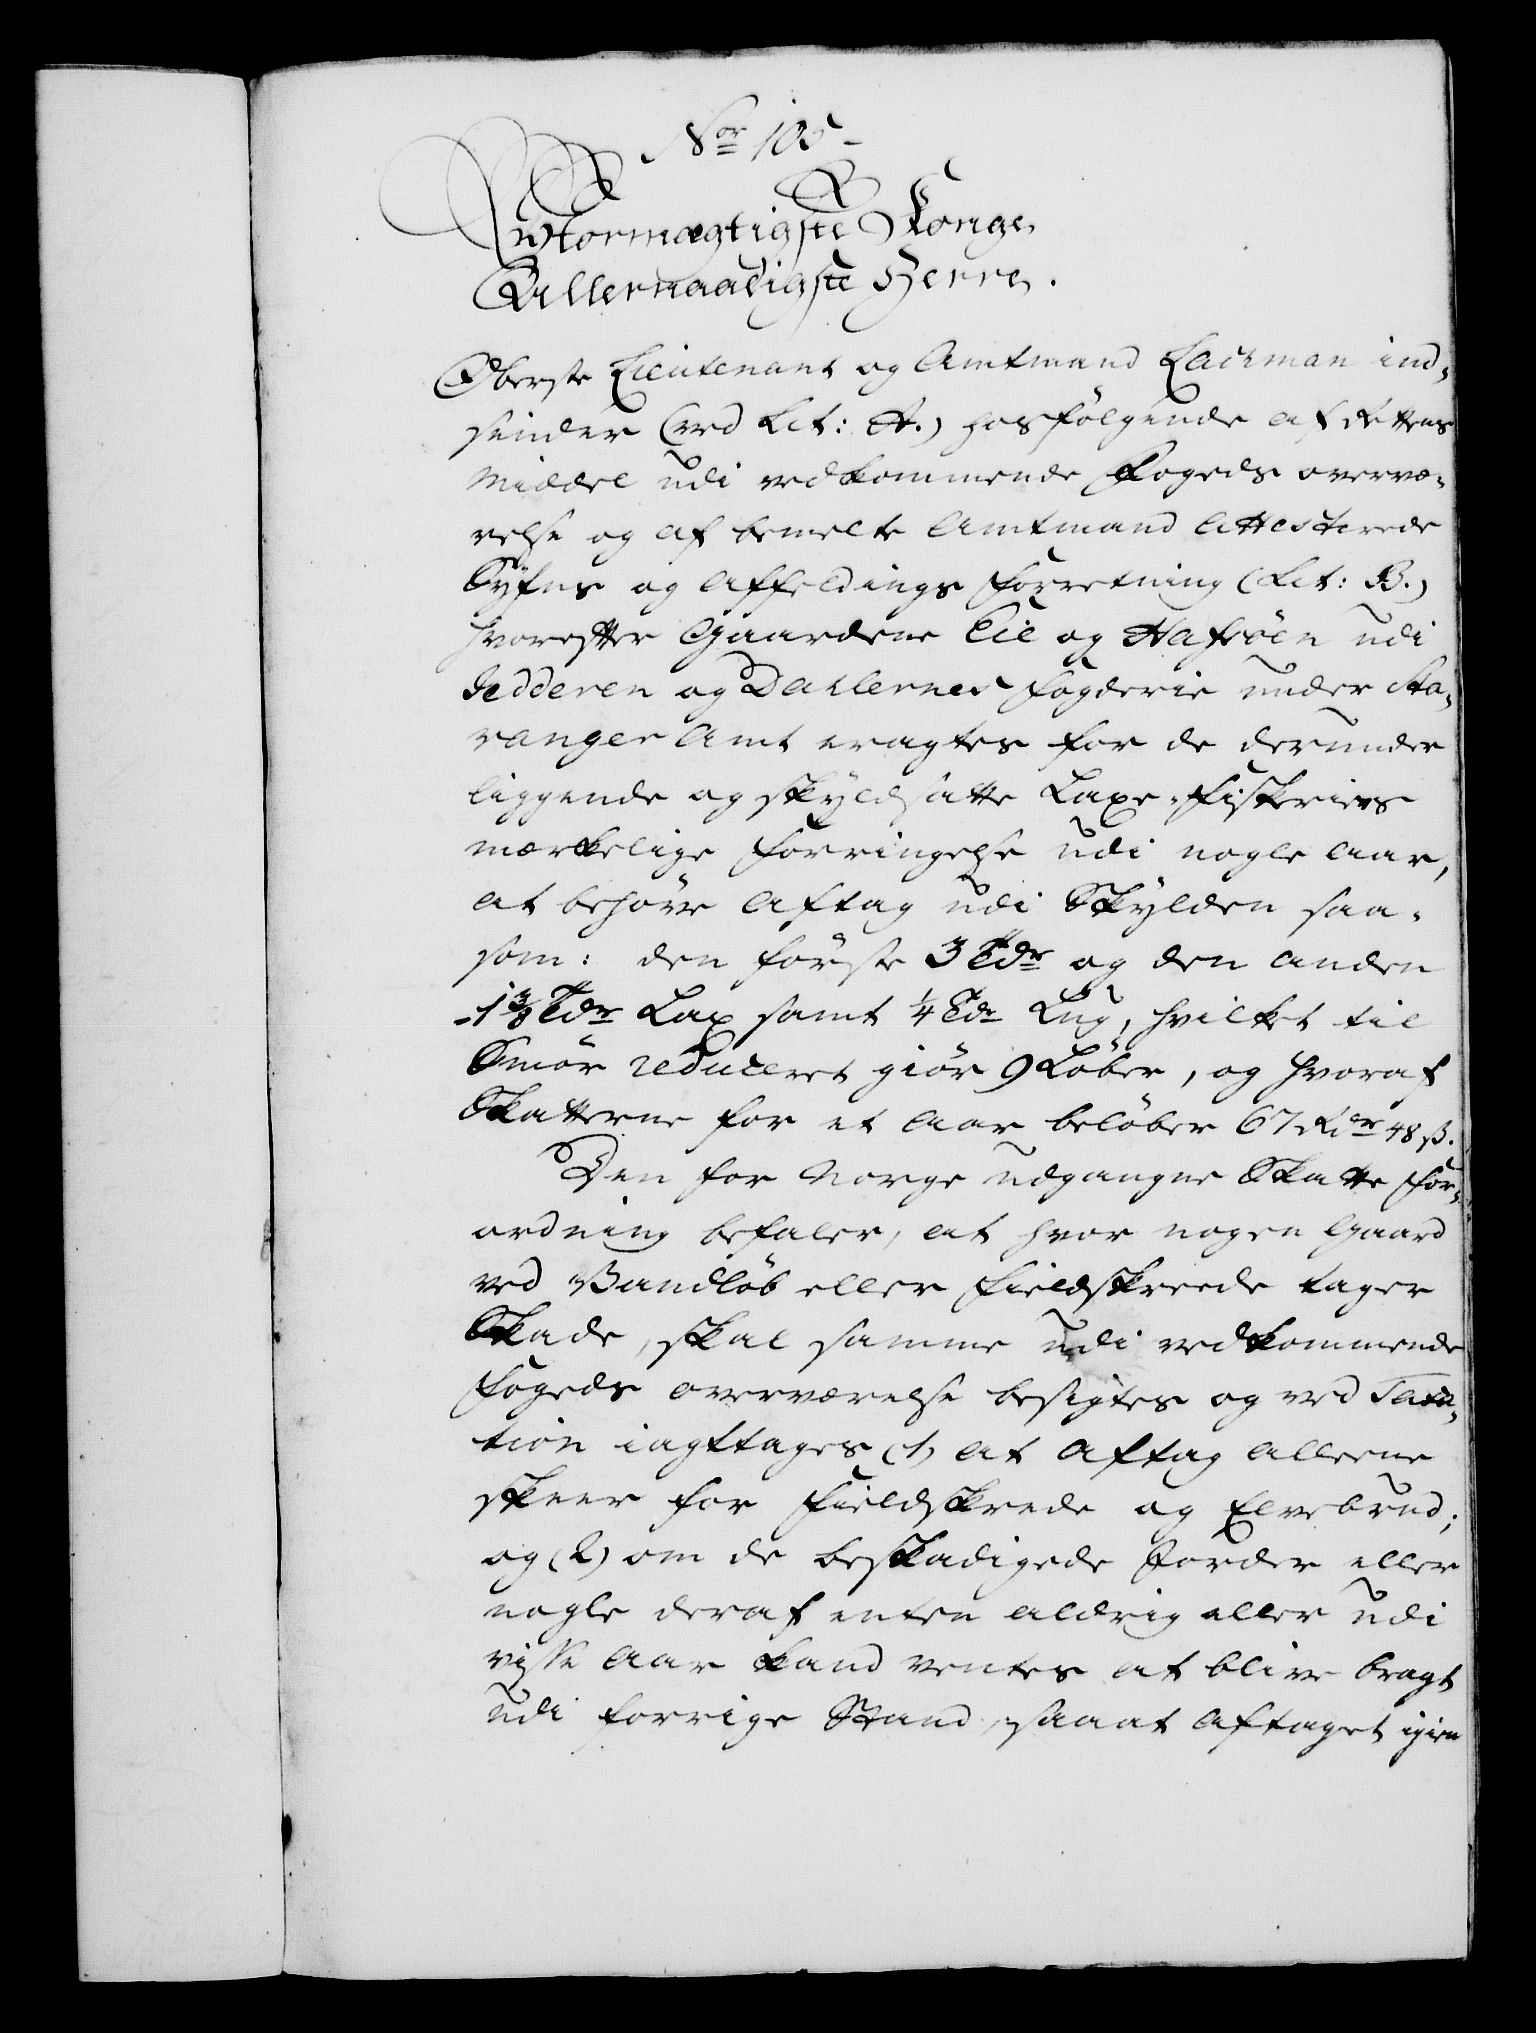 No 105
Stormægtigste Konge,
Allernaadigste Herre.
Oberste Lieutenant og Amtmand Lachman ind-
sender (ved Lit: A.) hosfølgende af Rettens
Middel udi vedkommende Fogeds overvæ-
relse og af bemelte Amtmand attesterede
Syfns og Affeldings Forretning (Lit: B.)
hvorefter Gaardene Eie og Hafsöen udi
Jedderen og Dahlernes Fogderie under Sta-
vanger Amt eragtes for de derunder
liggende og skyldsatte Laxe-Fiskeries
mærkelige Forringelse udi nogle Aar,
at behöve Aftag udi Skylden saa-
som: den förste 3 Tdr og den anden
1 3/8 Tdr Lax samt 1/4 Tdr Lug, hvilket til
Smör reduceret giör 9 Löber, og hvoraf
Skatterne for et Aar belöber 67 Rdr 48 ß.
Den for Norge udgangne Skatte For-
ordning befaler, at hvor nogen Gaard
ved Vandlöb eller Fieldskreede tager
Skade, skal samme udi vedkommende
Fogeds overværelse besigtes og ved Taxa-
tion iagttages (1) at Aftag alleene
skeer for Fieldskrede og Elvebrud;
og (2) om de beskadigede Jorder eller
nogle deraf enten aldrig eller udi
visse Aar kand ventes at blive bragt
udi forrige Stand, saaat Aftaget igien